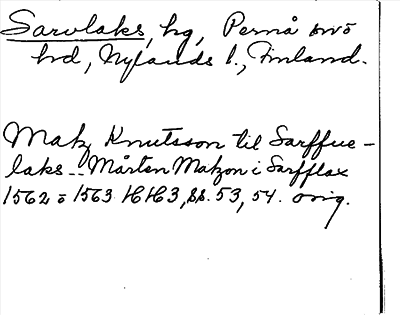 Sarvlaks, hg, Pernå snö
hd, Nylands l., Finland.
Matz Knutsson til Sarffue-
laks -- Mårten Matzon i Sarfflax
1562 o 1563 HH3, ss. 53, 54. orig.